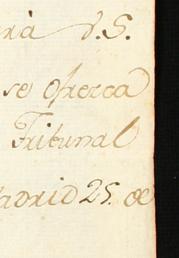 rá V.S.
se ofrezca
Tribunal
Madrid 25. de